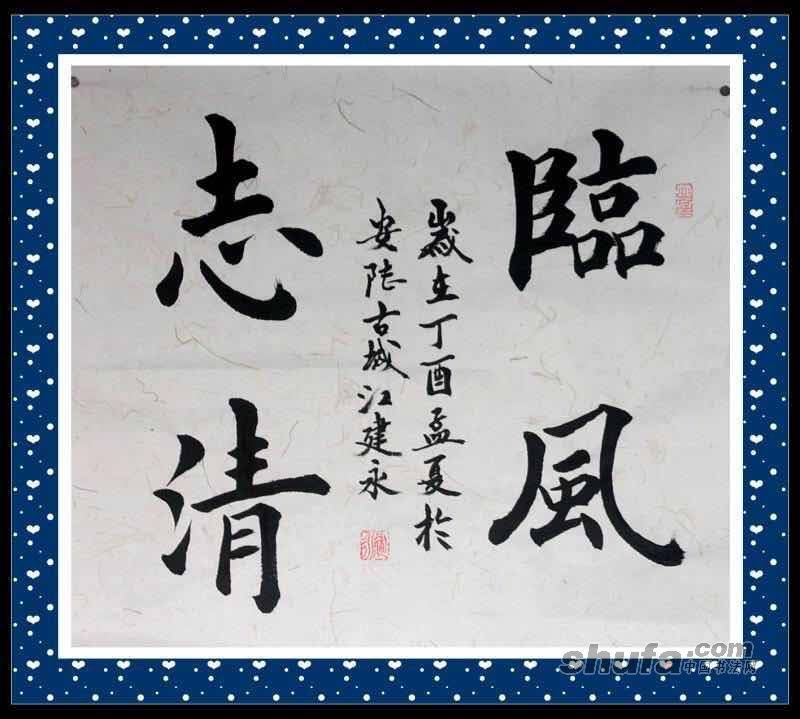 臨風
歲在丁酉孟夏於
安陆古城江建永
志清
shufa.com
中国书法网